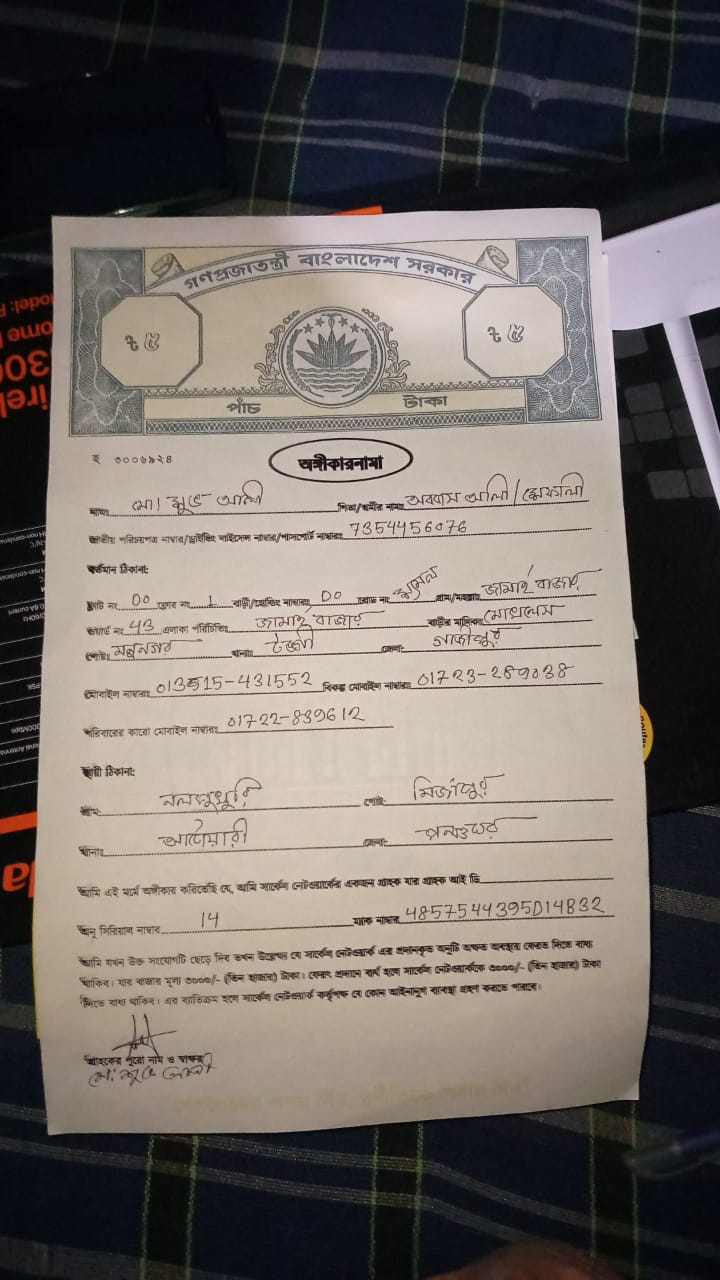 গণপ্রজাতন্ত্রী বাংলাদেশ সরকার
৳ ৫ ৳ ৫
পাঁচ টাকা
৩০০৬৯২৪
অঙ্গীকারনামা
নামঃ মোঃ আলী পিতা/স্বামীর নামঃ আববাস আলী/শেফালী
জাতীয় পরিচয়পত্র নাম্বার/ড্রাইভিং লাইসেন্স নাম্বার/পাসপোর্ট নাম্বারঃ 7354456076
বর্তমান ঠিকানা:
ফ্ল্যাট নং 00 ফ্লোর নং 1 বাড়ী/হোল্ডিং নাম্বারঃ DO রোড নং গ্রাম/মহল্লাঃ জামাই বাজার
ওয়ার্ড নং 43 এলাকা পরিচিতিঃ জামাই বাজার বাড়ীর মালিকঃ
পোষ্টঃ মন্নুনগর থানাঃ টঙ্গী জেলাঃ গাজীপুর
মোবাইল নাম্বারঃ 431552 বিকল্প মোবাইল নাম্বারঃ 01723-289038
পরিবারের কারো মোবাইল নাম্বারঃ 01722-839612
স্থায়ী ঠিকানা:
গ্রামঃ পোষ্টঃ মির্জাপুর
থানাঃ আটোয়ারী জেলাঃ পঞ্চগড়
আমি এই মর্মে অঙ্গীকার করিতেছি যে, আমি সার্কেল নেটওয়ার্কের একজন গ্রাহক যার গ্রাহক আইডি
অনু সিরিয়াল নাম্বার 14 ম্যাক নাম্বার 4857544395D14B32
আমি যখন উক্ত সংযোগটি ছেড়ে দিব তখন উল্লেখ্য যে সার্কেল নেটওয়ার্ক এর প্রদানকৃত অনুটি অক্ষত অবস্থায় ফেরত দিতে বাধ্য
থাকিব। যার বাজার মূল্য ৩০০০/- (তিন হাজার) টাকা। ফেরৎ প্রদানে ব্যর্থ হলে সার্কেল নেটওয়ার্ককে ৩০০০/- (তিন হাজার) টাকা
দিতে বাধ্য থাকিব। এর ব্যতিক্রম হলে সার্কেল নেটওয়ার্ক কর্তৃপক্ষ যে কোন আইনানুগ ব্যবস্থা গ্রহণ করতে পারবে।
গ্রাহকের পুরো নাম ও স্বাক্ষর
মোঃ আলী